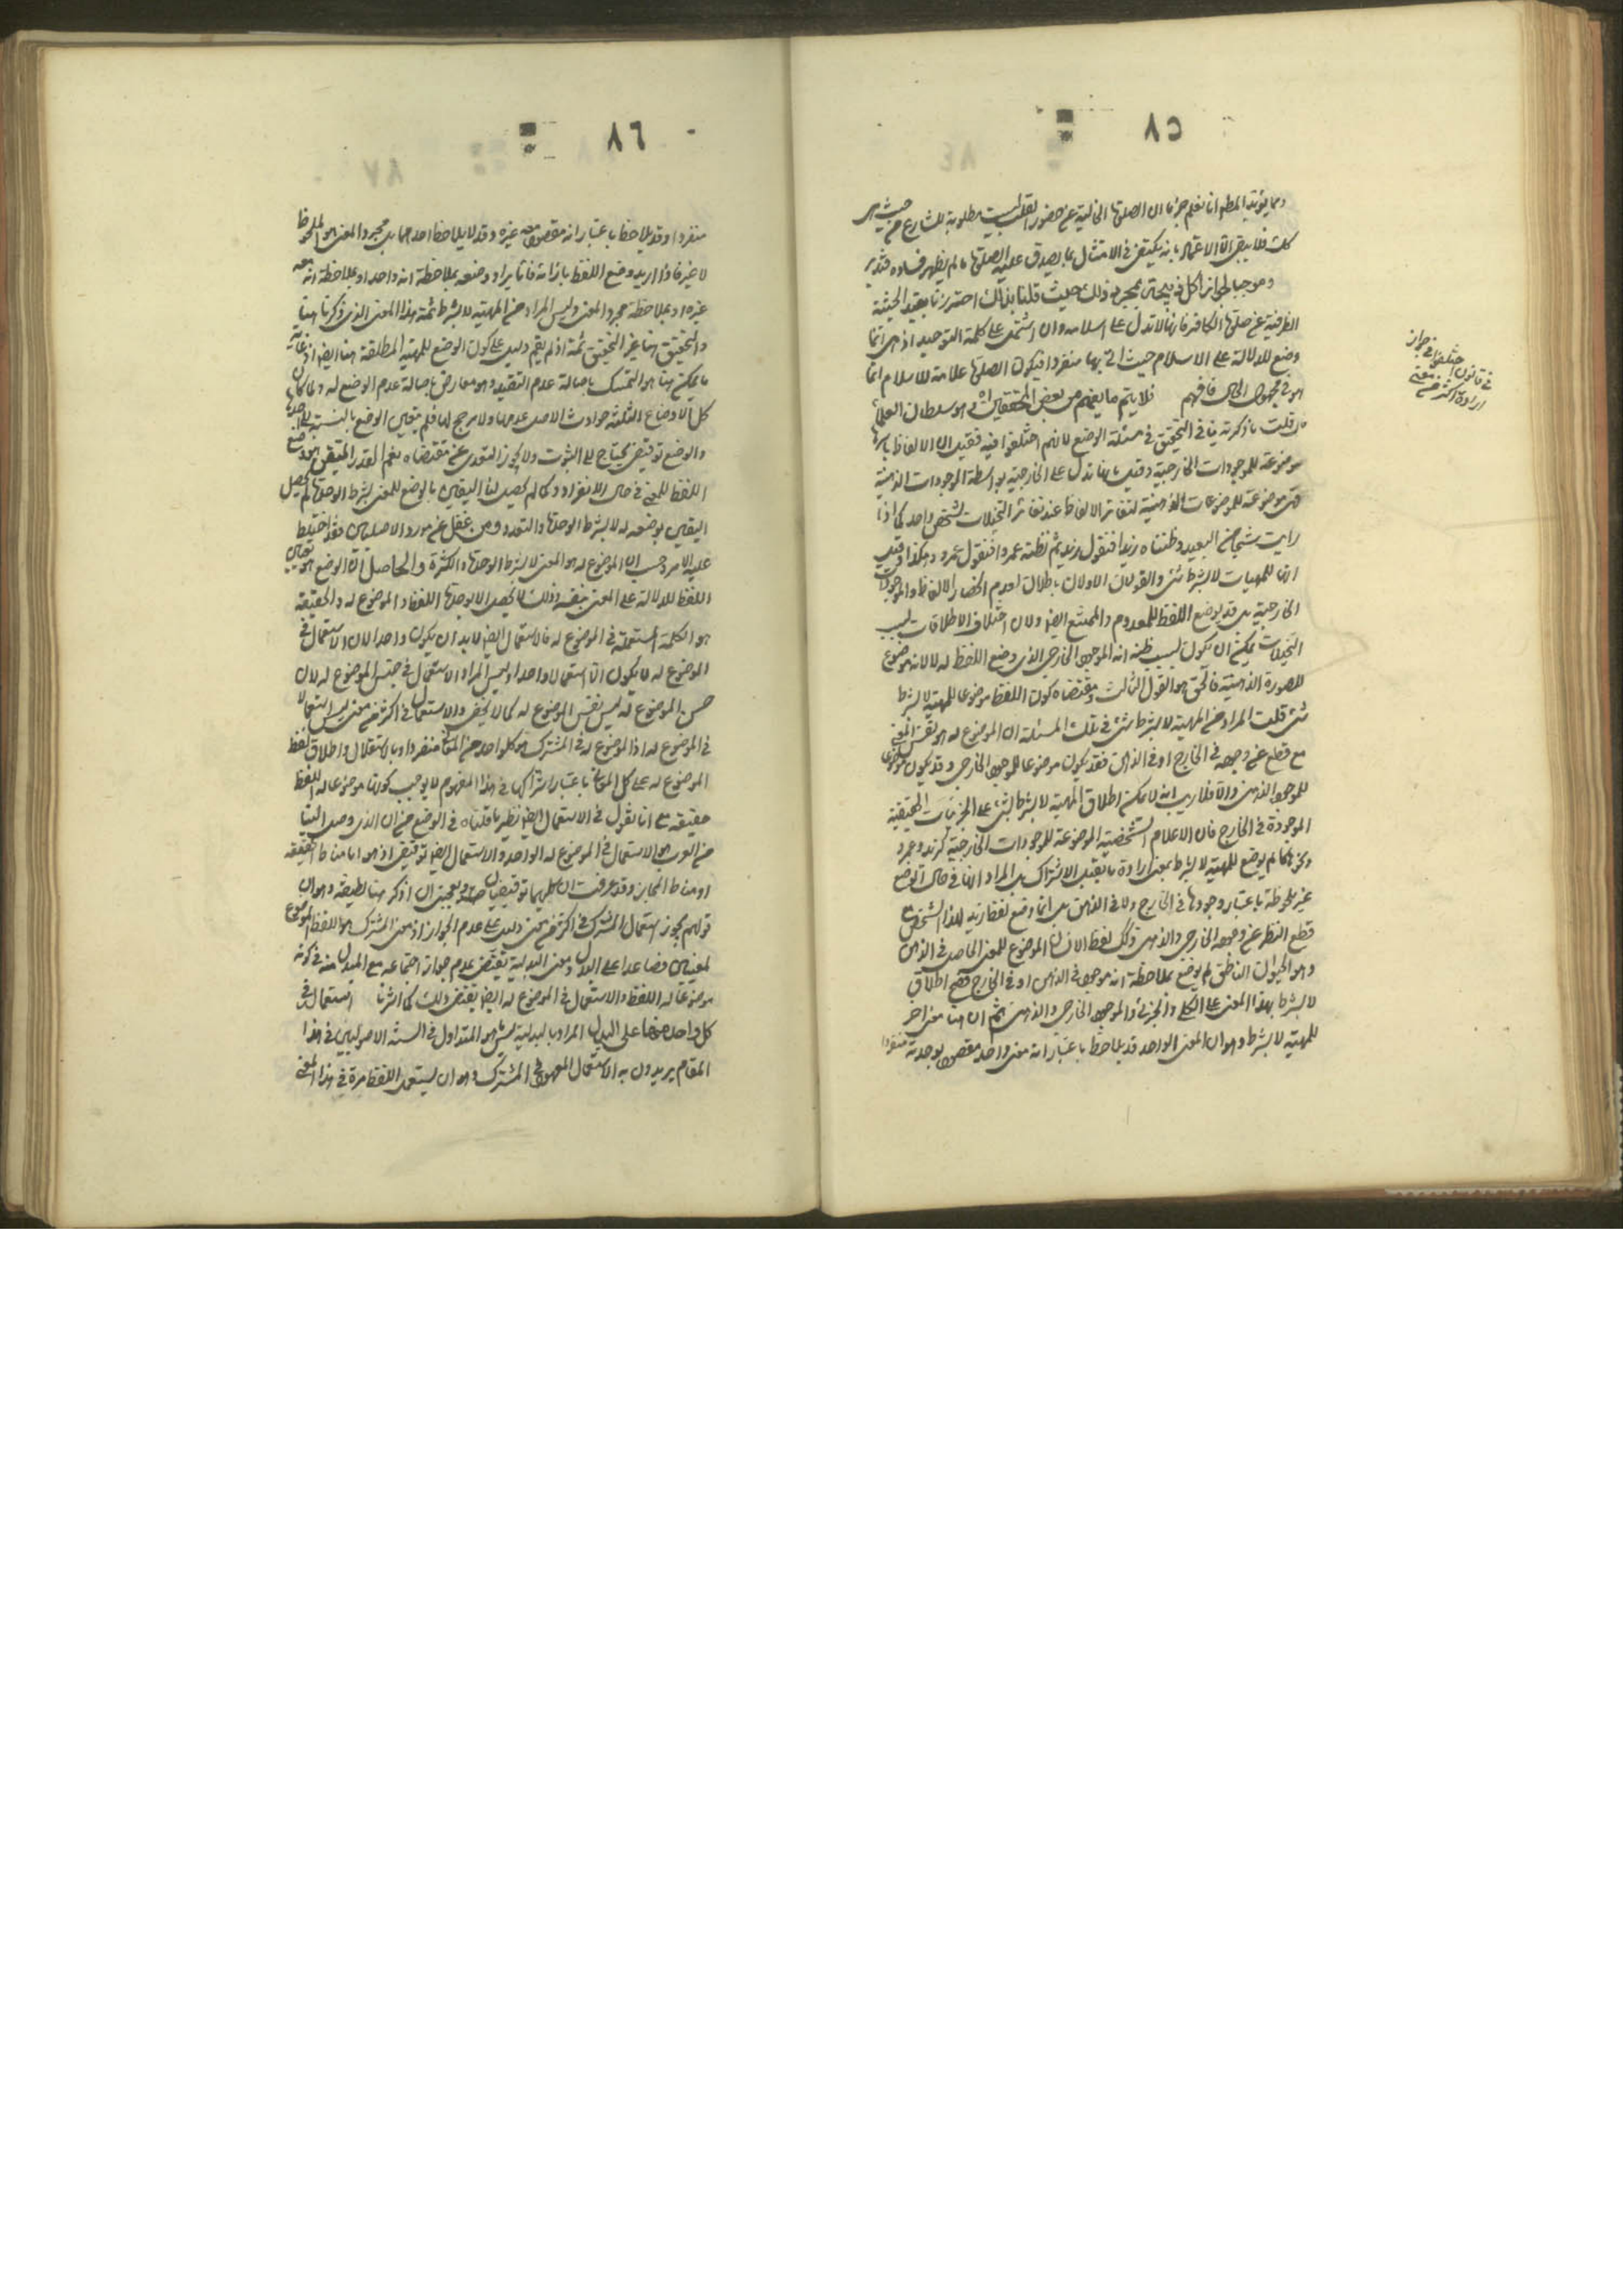 ٨٥
ومما يؤيد المطلوب انا نعلم جزما ان الصلوة الخالية عن حضور القلب ليست مطلوبة للشارع من حيث هى
كك فلا يبقى الا الاعتماد بانه يكتفى فى الامتثال بما يصدق عليه الصلوة ما لم يظهر فساده فتدبر
وموجبا لجواز اكل ذبيحتى بمجرد ذلك حيث قلنا بذلك احترزنا بقيد الحيثية
الظرفية عن صلوة الكافر فانها لا تدل على اسلامه وان اشتمل على كلمة التوحيد اذ هى انما
وضع للدلالة على الاسلام حيث اتى بها منفردا فيكون الصلوة علامة للاسلام انما
هو فى مجهول الحال فافهم فلا يتم ما يفهم من بعض المحققين وهو سلطان العلماء
فان قلت ما ذكرته ينافى التحقيق فى مسئلة الوضع لانهم اختلفوا فيه فقيل ان الالفاظ باسرها
موضوعة للموجودات الخارجية وقيل بانها تدل على الخارجية بواسطة الموجودات الذهنية
فهى موضوعة للموضوعات الذهنية لتغاير الالفاظ عند تغاير التخيلات لشخص واحد كما اذا
رايت شبحا من البعيد وظننته زيدا فتقول زيد ثم تظنه عمروا فتقول عمرو وهكذا وقيل
انها للمهيات لا بشرط شئ والقولان الاولان باطلان لعدم انحصار الالفاظ والموجودات
الخارجية بل قد يوضع اللفظ للمعدوم والممتنع ايض ولان اختلاف الاطلاقات بسبب
التخيلات يمكن ان يكون بسبب ظنه انه الموجود الخارجى الذى وضع اللفظ له لا لانه موضوع
للصورة الذهنية فالحق هو القول الثالث ومقتضاه كون اللفظ موضوعا للمهية لا بشرط
شئ قلت المراد من المهية لا بشرط شئ فى تلك المسئلة ان الموضوع له هو نفس المعنى
مع قطع عن وجوده فى الخارج او فى الذهن فقد يكون موضوعا للموجود الخارجى وقد يكون موضوعا
للموجود الذهنى والا فلا ريب انه لا يمكن اطلاق المهية لا بشرط شئ على الجزئيات الحقيقية
الموجودة فى الخارج فان الاعلام الشخصية الموضوعة للموجودات الخارجية كزيد وعمرو
وبكر فلم يوضع للمهية لا بشرط بمعنى ارادة ما يقبل الاشتراك بل المراد انها فى حال الوضع
غير ملحوظة باعتبار وجودها فى الخارج ولا فى الذهن بل انما وضع لفظ زيد لهذا الشخص مع
قطع النظر عن وجوده الخارجى والذهنى وكذلك لفظ الانسان الموضوع للمعنى الحاصل فى الذهن
وهو الحيوان الناطق لم يوضع بملاحظة انه موجود فى الذهن او فى الخارج فصح اطلاق
لا بشرط بهذا المعنى على الكلى والجزئى والموجود الخارجى والذهنى ثم ان هنا معنى اخر
للمهية لا بشرط وهو ان المعنى الواحد قد يلاحظ باعتبار انه معنى واحد مقصود بوحدته منفردا
فى قانون اختلفوا فى جواز
ارادة اكثر من معنى
٨٦
منفردا وقد يلاحظ باعتبار انه مقصود معه غيره وقد لا يلاحظ احدهما بل مجرد المعنى هو الملحوظ
لا غير فاذا اريد وضع اللفظ بازائه فاما يراد وضعه بملاحظة انه واحد او بملاحظة انه معه
غيره او بملاحظة مجرد المعنى وليس المراد من المهية لا بشرط ثمة هذا المعنى الذى ذكرنا هنا
والتحقيق هنا غير التحقيق ثمة اذ لم يقم دليل على كون الوضع للمهية المطلقة هنا ايض اذ غاية
ما يمكن هنا هو التمسك باصالة عدم التقييد وهو معارض باصالة عدم الوضع له ولما كان
كل الاوضاع الثلثة حوادث الاصل عدمها ولا مرجح لها فلم يتعين الوضع بالنسبة الى احدها
والوضع توقيفى يحتاج الى الثبوت ولا يجوز التعدى عن مقتضاه نعم القدر المتيقن هو وضع
اللفظ للمعنى فى حال الانفراد وكما لم يحصل لنا اليقين بالوضع للمعنى بشرط الوحدة لم يحصل
اليقين بوضعه له لا بشرط الوحدة والتعدد ومن غفل عن مورد الاصلين فقد اختلط
عليه الامر وحسب ان الموضوع له هو المعنى لا بشرط الوحدة والكثرة والحاصل ان الوضع هو تعيين
اللفظ للدلالة على المعنى بنفسه وذلك لا يحصل الا بوحدة اللفظ والموضوع له والحقيقة
هو الكلمة المستعملة فى الموضوع له فالاستعمال ايض لا بد ان يكون واحدا لان الاستعمال فى
الموضوع له لا يكون الا استعمالا واحدا وليس المراد الاستعمال فى جنس الموضوع له لان
جنس الموضوع له ليس نفس الموضوع له كما لا يخفى والاستعمال فى اكثر من معنى ليس استعمالا
فى الموضوع له اذ الموضوع له فى المشترك هو كل واحد من المعانى منفردا وبالاستقلال واطلاق لفظ
الموضوع له على كل المعانى باعتبار اشتراكها فى هذا المفهوم لا يوجب كونها موضوعا له اللفظ
حقيقة مع انا نقول فى الاستعمال ايض نظير ما قلناه فى الوضع من ان الذى وصل الينا
من العرب هو الاستعمال فى الموضوع له الواحد والاستعمال ايض توقيفى اذ هو اما مناط الحقيقة
او مناط المجاز وقد عرفت ان كليهما توقيفيان ويعجبنى ان اذكر هنا لطيفة وهو ان
قولهم يجوز استعمال المشترك فى اكثر من معنى دليل على عدم الجواز اذ معنى المشترك هو اللفظ الموضوع
لمعنيين فصاعدا على البدل ومعنى البدلية يقتضى عدم جواز اجتماعه مع المبدل منه فى كونه
موضوعا له اللفظ والاستعمال فى الموضوع له ايض يقتضى ذلك كما اشرنا استعمال فى
كل واحد منها على البدل المراد بالبدلية ليس هو المتداول فى السنة الاصوليين فى هذا
المقام يريدون به الاستعمال المعهود فى المشترك وهو ان يستعمل اللفظ مرة فى هذا المعنى